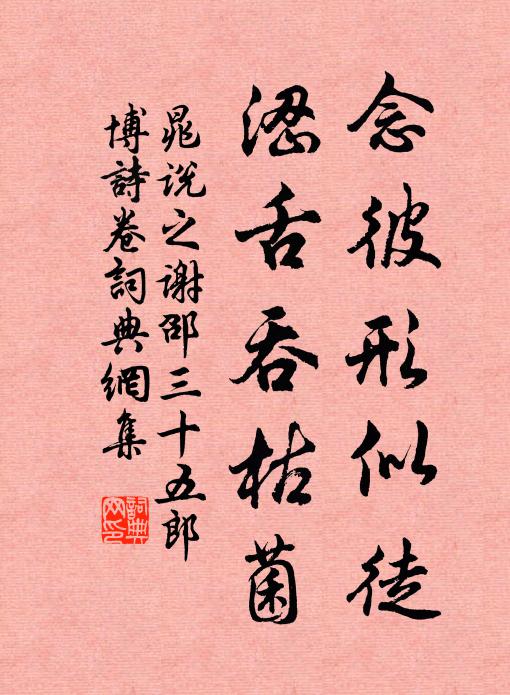 念彼形似徒
涩舌吞枯菌
晁说之谢邵三十五郎
博詩卷詞典網集
詞典
网印